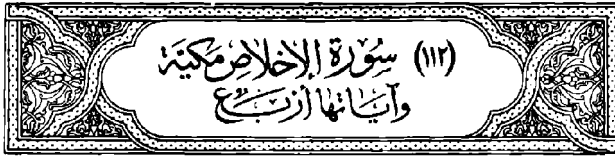 (١١٢) سُورَةُ الإِخْلَاصِ مَكِّيَّة
وَآيَاتُهَا أَرْبَع